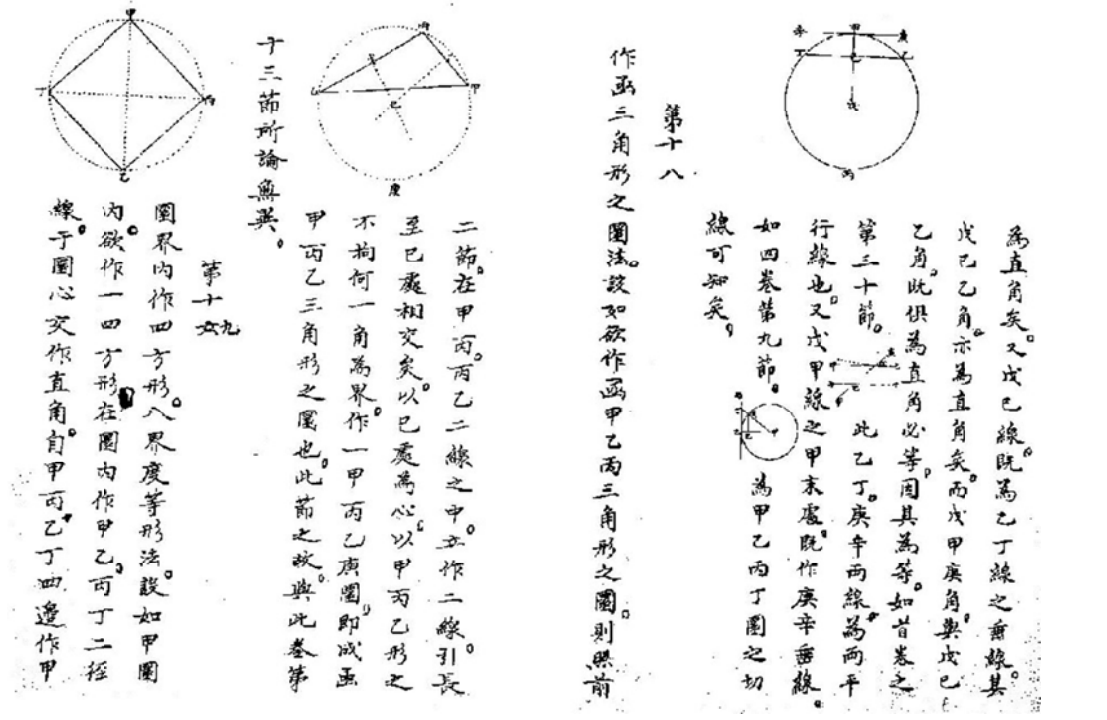 為直角矣。又戊巳線。既為乙丁線之垂線。其
戊巳乙角。亦為直角矣。而戊甲庚角。與戊巳
乙角。既俱為直角必等。因其為等。如首卷之
第三十節。
此乙丁。庚辛兩線。為兩平
行線也。又戊甲線之甲末處。既作庚辛垂線。
如四卷第九節。
為甲乙丙丁圜之切
線可知矣。
第十八
作函三角形之圜法。設如欲作函甲乙丙三角形之圜。則照前
二節。在甲丙。丙乙二線之中。立作二線。引長
至巳處相交矣。以巳處為心。以甲丙乙形之
不拘何一角為界。作一甲丙乙庚圜。即成函
甲丙乙三角形之圜也。此節之故。與此卷第
十三節所論無異。
第十九
圜界內作四方形。八界度等形法。設如甲圜
內。欲作一四方形在圜內作甲乙。丙丁二徑
線。于圜心交作直角。自甲丙乙丁四邊作甲
辛 甲 庚
丁 巳 乙
戊
丙
丙
乙 甲
巳
庚
甲
丁 丙
乙